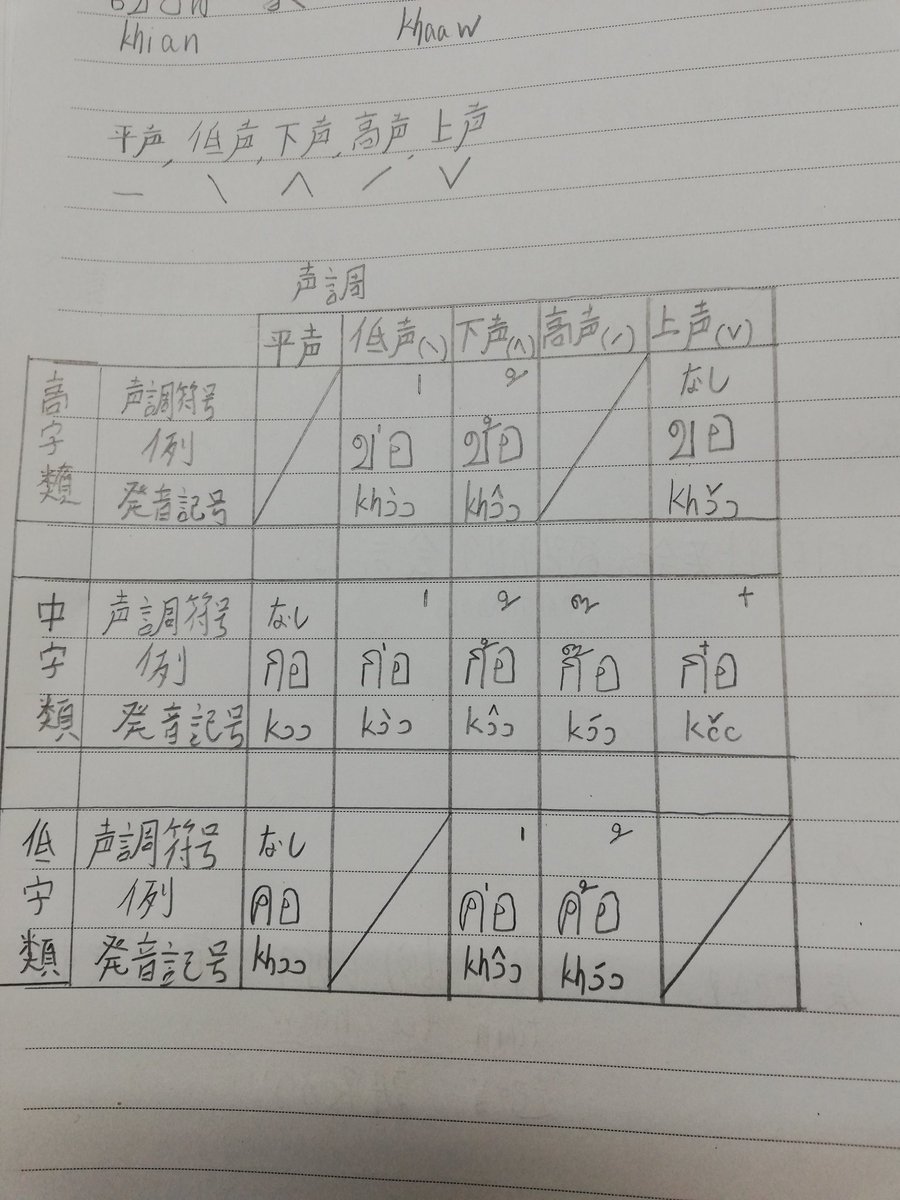 khian khaaw
平声, 低声, 下声, 高声, 上声
— \ ∧ / ∨
声調
平声 低声(\) 下声(∧) 高声(/) 上声(∨)
高字類
声調符号 ่ ้ なし
例 ข่อ ข้อ ขอ
発音記号 khɔ̀ɔ khɔ̂ɔ khɔ̌ɔ
中字類
声調符号 なし ่ ้ ๊ ๋
例 กอ ก่อ ก้อ ก๊อ ก๋อ
発音記号 kɔɔ kɔ̀ɔ kɔ̂ɔ kɔ́ɔ kčc
低字類
声調符号 なし ่ ้
例 คอ ค่อ ค้อ
発音記号 khɔɔ khɔ̂ɔ khɔ́ɔ